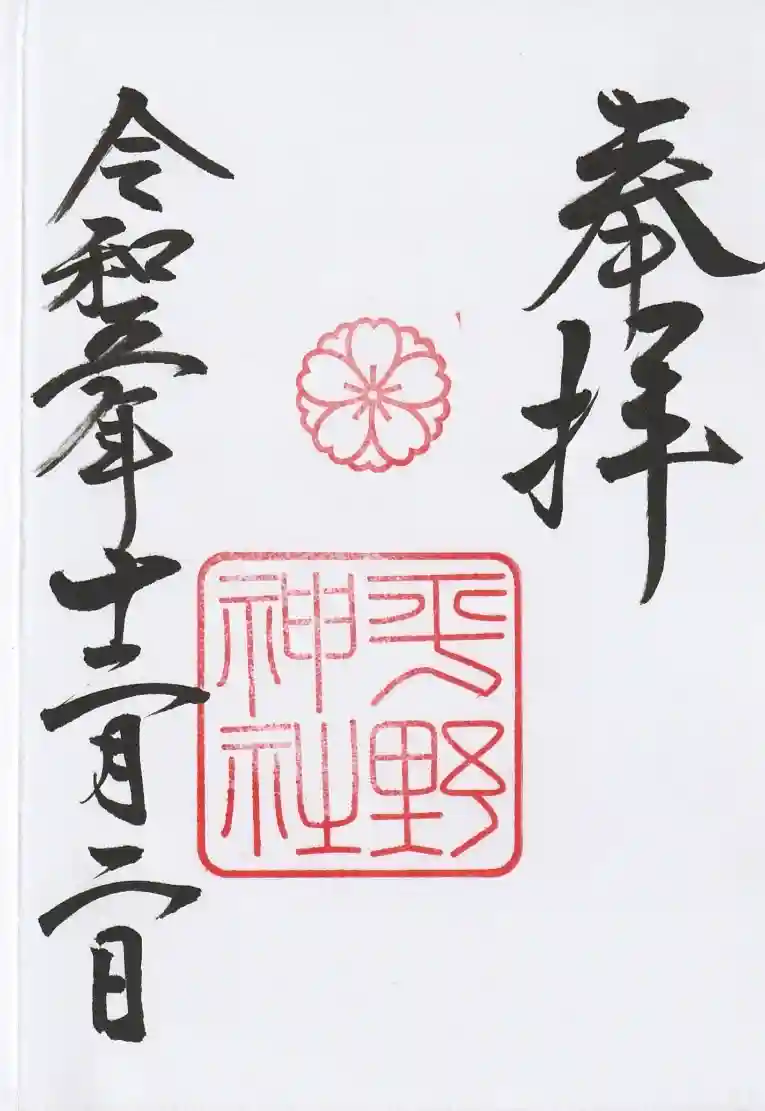 奉拝
平野
神社
令和五年十二月二日